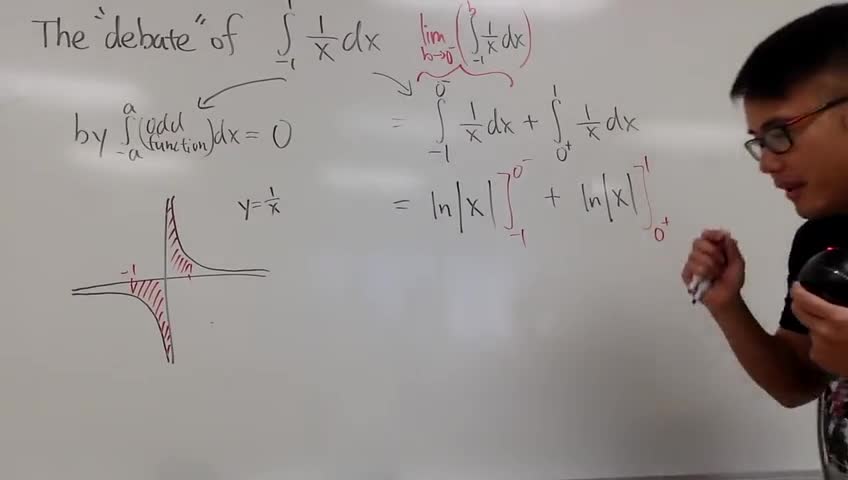 The "debate" of ∫_{-1}^{1} 1/x dx
lim_{b→0^-} (∫_{-1}^{b} 1/x dx)
by ∫_{-a}^{a} (odd function) dx = 0
= ∫_{-1}^{0^-} 1/x dx + ∫_{0^+}^{1} 1/x dx
y = 1/x
= ln|x| ]_{-1}^{0^-} + ln|x| ]_{0^+}^{1}
-1